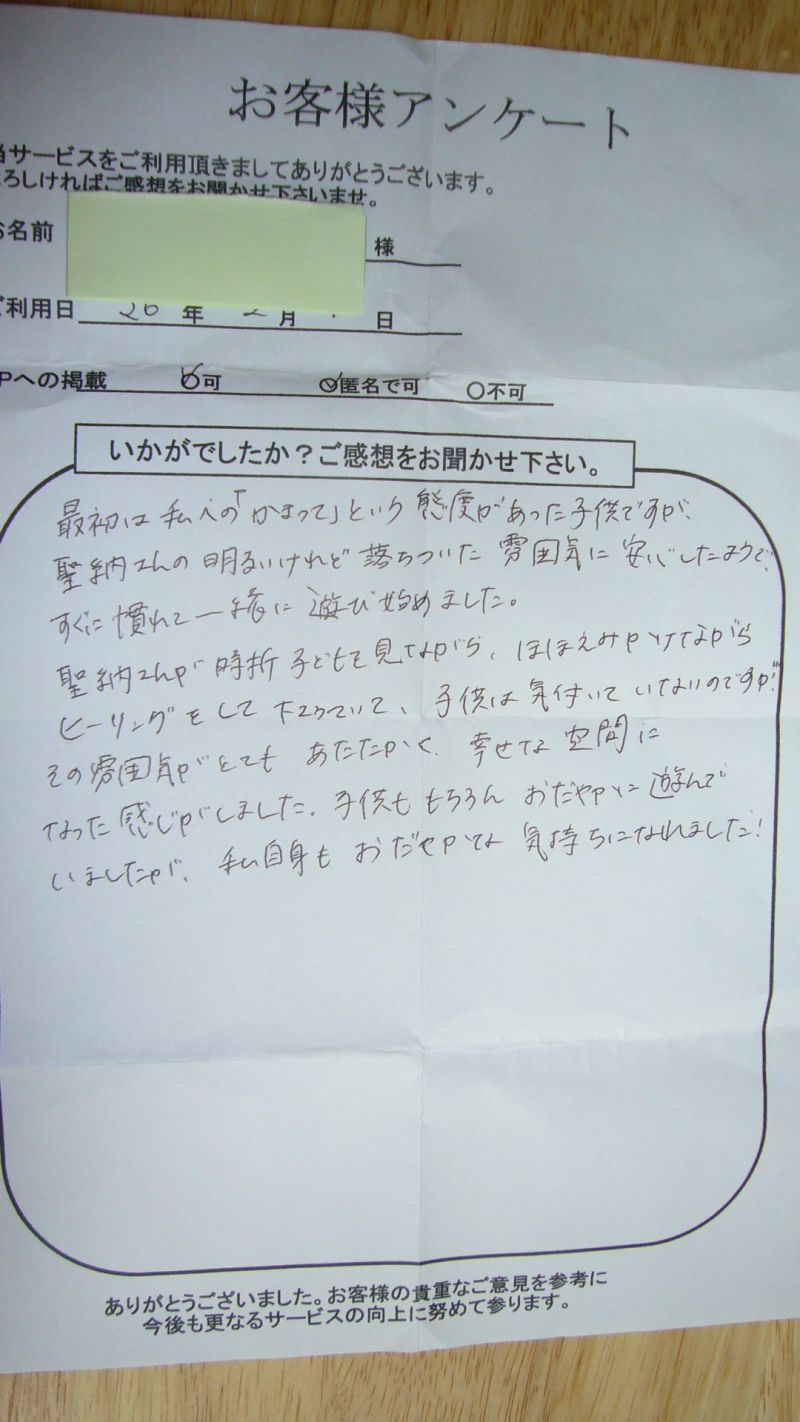 お客様アンケート
当サービスをご利用頂きましてありがとうございます。
よろしければご感想をお聞かせ下さいませ。
お名前 様
ご利用日 20年 月 日
Pへの掲載 ○可 ○匿名で可 ○不可
いかがでしたか？ご感想をお聞かせ下さい。
最初は私への「かまって」という態度があった子供ですが、
聖納さんの明るいけれど落ちついた雰囲気に安心したようで、
すぐに慣れて一緒に遊び始めました。
聖納さんが時折子どもを見ながら、ほほえみかけながら
ヒーリングをして下さっていて、子供は気付いていないのですが、
その雰囲気がとてもあたたかく、幸せな空間に
なった感じがしました。子供ももちろんおだやかに遊んで
いましたが、私自身もおだやかな気持ちになれました！
ありがとうございました。お客様の貴重なご意見を参考に
今後も更なるサービスの向上に努めて参ります。